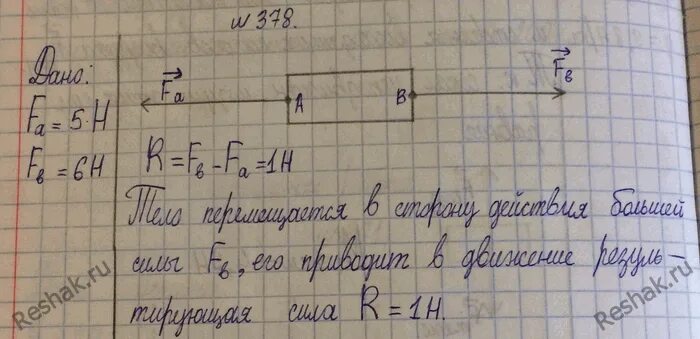 № 378.
Дано:
Fа = 5 Н
Fв = 6Н
Fа
A
B
Fв
R = Fв - Fа = 1Н
Тело перемещается в сторону действия большей
силы Fв, его приводит в движение резуль-
тирующая сила R = 1Н.
Reshak.ru
Reshak.ru